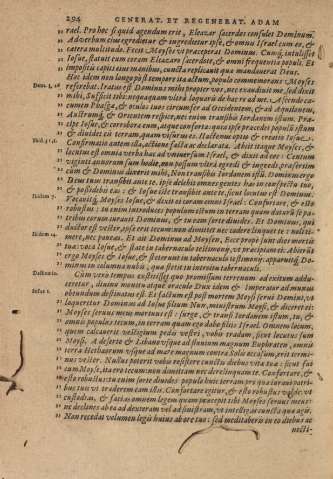 294 GENERAT. ET REGENERAT. ADAM
rael. Pro hoc si quid agendum erit, Eleazar sacerdos consulet Dominum.
Ad verbum eius egredietur & ingredietur ipse, & omnis Israel cum eo, &
cætera multitudo. Fecit Moyses vt præceperat Dominus. Cumque
Iosue, statuit eum coram Eleazaro sacerdote, & omni frequentia populi. Et
impositis capiti eius manibus, cuncta replicauit quæ mandauerat Deus.
Hoc idem non longo pòst tempore ita actum, populo commemorans Moyses
referebat. Iratus est Dominus mihi propter vos, nec exaudiuit me, sed dixit
mihi, Sufficit tibi: nequaquam vltra loquaris de hac re ad me. Ascende ca-
cumen Phasga, & oculos tuos circunfer ad Occidentem, & ad Aquilonem,
Austrumq, & Orientem respice, nec enim transibis Iordanem istum. Præ-
cipe Iosue, & corrobora eum, atque conforta: quia ipse præcedet populum istum
& diuidet eis terram, quam visurus es.
Confirmatio autem illa, actione facta ac declarata. Abiit itaque Moyses, &
locutus est omnia verba hæc ad vniuersum Israel, & dixit ad eos: Centum
viginti annorum sum hodie, non possum vltra egredi & ingredi, præsertim
cum & Dominus dixerit mihi, Non transibis Iordanem istum. Dominus ergo
Deus tuus transibit ante te, ipse delebit omnes gentes has in conspectu tuo,
& possidebis eas: & Iosue iste transibit ante te, sicut locutus est Dominus.
Vocauitq, Moyses Iosue, & dixit ei coram omni Israel: Confortare, & esto
robustus: tu enim introduces populum istum in terram quam daturum se pa-
tribus eorum iurauit Dominus, & tu eam sorte diuides. Et Dominus, qui
ductor est vester, ipse erit tecum: non dimittet nec
mere, nec paueas. Et ait Dominus ad Moysen, Ecce propè sunt dies mortis
tuæ: voca Iosue, & state in tabernaculo testimonij, vt præcipiam ei. Abierunt
ergo Moyses & Iosue, & steterunt in tabernaculo testimonij: apparuitq, Do-
minus in columna nubis, quæ stetit in introitu tabernaculi.
Cum vero tempus extitisset quo promissam terram adituri
diuino monitu atque oraculo Dux idem & Imperator ad munus
obeundum destinatus est. Et factum est post mortem Moysi serui Domini, vt
loqueretur Dominus ad Iosue filium Nun, ministrum Moysi, & diceret ei:
Moyses seruus meus mortuus est: surge, & transi Iordanem istum, tu, &
omnis populus tecum, in terram quam ego dabo filiis Israel. Omnem locum,
quem calcauerit vestigium pedis vestri, vobis tradam, sicut locutus sum
Moysi. A deserto & Libano vsque ad fluuium magnum Euphraten, omnis
terra Hethæorum vsque ad mare magnum contra Solis occasum, erit termi-
nus vester. Nullus poterit vobis resistere cunctis diebus vitæ tuæ: sicut fui
cum Moyse, ita ero tecum: non dimittam nec derelinquam te. Confortare, &
esto robustus: tu enim sorte diuides populo huic terram pro qua iuraui patri-
bus suis vt traderem eam illis. Confortare igitur, & esto robustus valde: vt
custodias, & facias omnem legem quam præcepit tibi Moyses seruus meus:
ne declines ab ea ad dexteram vel ad sinistram, vt intelligas cuncta quæ agis.
Non recedat volumen legis huius ab ore tuo: sed meditaberis in eo diebus ac
nocti-